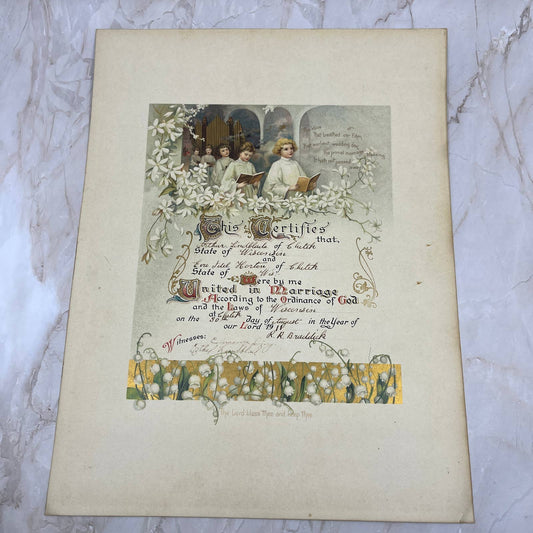 That breathed o'er Eden
That earliest wedding day
The primal marriage blessing
It hath not passed
This Certifies
that,
Arthur of Chetek
State of Wisconsin
and
Horton of Chetek
State of Wis
Were by me
United in Marriage
According to the Ordinance of God
and the Laws of Wisconsin
at Chetek
on the 30 Day of August in the Year of
our Lord 1911
Witnesses: R. R. Braddick
The Lord bless Thee and keep Thee.